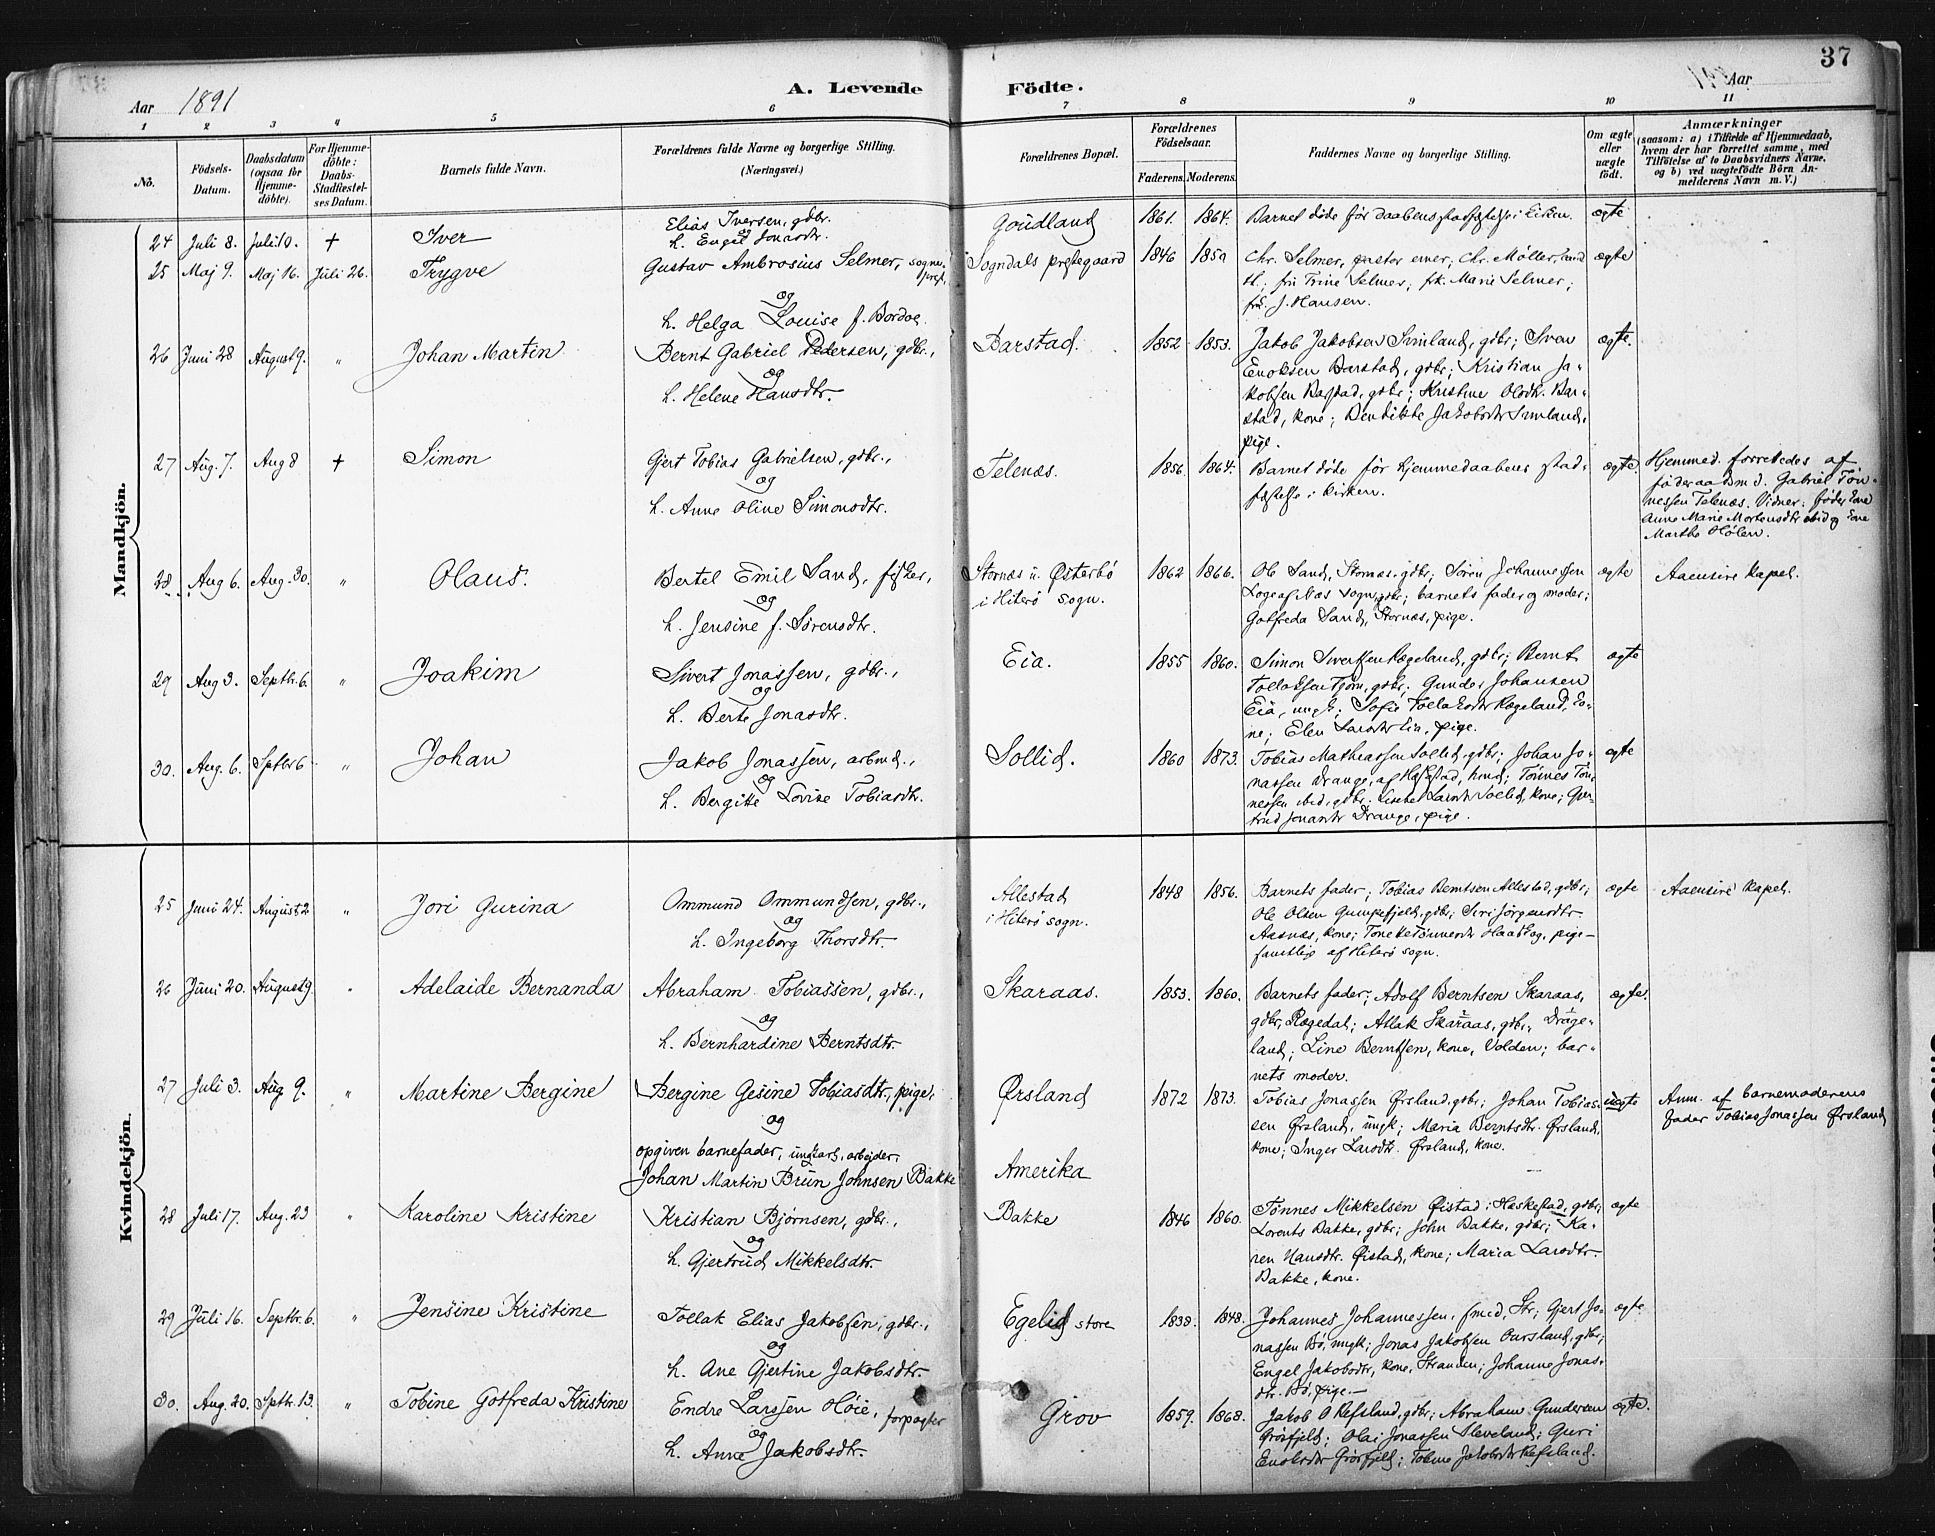 37
Aar 1891 A. Levende Födte. Aar
1 2 3 4 5 6 7 8 9 10 11
No.
Födsels-Datum.
Daabsdatum (ogsaa for Hjemme-döbte).
For Hjemme-döbte: Daabs-Stadfæstel-ses Datum.
Barnets fulde Navn.
Forældrenes fulde Navne og borgerlige Stilling. (Næringsvei.)
Forældrenes Bopæl.
Forældrenes Födselsaar.
Faderens. Moderens.
Faddernes Navne og borgerlige Stilling.
Om ægte eller uægte födt.
Anmærkninger
(saasom: a) i Tilfælde af Hjemmedaab, hvem der har forrettet samme, med Tilföielse af to Daabsvidners Navne, og b) ved uægtefödte Börn An-melderens Navn m. V.)
Mandkjön.
24 Juli 8. Juli 10. + Iver Elias Iversen, gdbr. Goudland 1861. 1864. Barnet døde før daabens stadfæstelse i kirken. ægte
og
h. Engel Jonasdtr.
25 Maj 9. Maj 16. Juli 26. Trygve Gustav Ambrosius Selmer, sogne-prest, Sogndals prestegaard 1846 1850 Chr. Selmer, pastor emer; Chr. Møller, ægte
fru Trine Selmer; frk. Marie Selmer;
J. Hansen.
og
h. Helga Louise f. Bordoe.
26 Juni 28 August 9. " Johan Martin Bernt Gabriel Pedersen, gdbr., Barstad. 1852 1853. Jakob Jakobsen Svinland, gdbr; Sven ægte.
Enoksen Barstad, gdbr; Kristian Ja-
kobsen Barstad, gdbr; Kristine Olsdtr. Bar-
stad, kone; Bendikte Jakobsdtr Svinland,
pige.
og
h. Helene Hansdtr.
27 Aug. 7. Aug 8 + Simon Gjert Tobias Gabrielsen, gdbr., Telenæs. 1856. 1864. Barnet døde før hjemmedaabens stad-
fæstelse i kirken. ægte.
og
h. Anne Oline Simonsdtr.
Hjemmed. forrettedes af
føderaadsmd. Gabriel Tøn-
nessen Telenæs. Vidner:
Anne Marie Mortensdtr ibid og
Marthe Hølen.
28. Aug 6. Aug. 30. " Olaus. Bertel Emil Sand, fisker, Stornæs u. Østerbø 1862 1866. Ole Sand, Stornæs, gdbr; Søren Johannessen ægte Aaensire kapel.
i Hiterø sogn. sogn, gdbr; barnets fader og moder;
Gotfreda Sand, Stornæs, pige.
og
h. Jensine f. Sørensdtr.
29 Aug 3. Septbr. 6. " Joakim Sivert Jonassen, gdbr., Eia. 1855 1860. Simon Sivertsen Rægeland, gdbr; Bernt ægte
Tollaksen Tjørn, gdbr; Gunder Johansen
Eia, ungk; Sofie Tollaksdtr Rægeland, ko-
ne; Elen Larsdtr Eia, pige.
og
h. Berte Jonasdtr.
30. Aug. 6. Septbr 6 " Johan Jakob Jonassen, arbmd., Sollid. 1860 1873. Tobias Mathiassen Sollid, gdbr; Johan Jo- ægte
nassen Drange, af Heskestad, Tønnes Tøn-
nessen ibid, gdbr; Larsdtr Sollid, kone; Gjer-
trud Jonasdtr Drange, pige.
og
h. Bergitte Lovise Tobiasdtr.
Kvindekjön.
25 Juni 24. August 2 " Jori Gurina Ommund Ommundsen, gdbr., Allestad 1848 1856. Barnets fader; Tobias Berntsen Allestad, gdbr; ægte Aaensire kapel.
i Hiterø sogn. Ole Olsen Gumpefjeld, gdbr; Siri Jørgensdtr
Aasnæs, kone; pige
samtlige af Hiterø sogn.
og
h. Ingeborg Thorsdtr.
26 Juni 20. August 9. " Adelaide Bernanda Abraham Tobiassen, gdbr., Skaraas. 1853. 1860. Barnets fader; Adolf Berntsen Skaraas, ægte.
gdbr, Rægedal; Atlak Skaraas, gdbr, Dräge-
land; Line Berntsen, kone, Volden; bar-
nets moder.
og
h. Bernhardine Berntsdtr.
27 Juli 3. Aug 9. " Martine Bergine Bergine Gesine Tobiasdtr., pige, Ørsland 1872 1873. Tobias Jonassen Ørsland, gdbr; Johan Tobias- uægte
sen Ørsland, ungk; Maria Berntsdtr. Ørsland,
kone; Inger Larsdtr. Ørsland, kone.
og
opgiven barnefader, ungkarl, arbejder,
Johan Martin Brun Johnsen Bakke Amerika
Anm. af barnemoderens
fader Tobias Jonassen Ørsland
28 Juli 17. Aug. 23 " Karoline Kristine Kristian Bjørnsen, gdbr., Bakke 1846 1860. Tønnes Mikkelsen Øistad i Heskestad, gdbr; ægte
Lorents Bakke, gdbr; John Bakke, gdbr; Ka-
ren Hansdtr. Øistad, kone; Maria Larsdtr
Bakke, kone.
og
h. Gjertrud Mikkelsdtr.
29 Juli 16. Septbr. 6. " Jensine Kristine Tollak Elias Jakobsen, gdbr., Egelid store 1838. 1848. Johannes Johannessen, Str; Gjert Jo- ægte
nassen Bö, ungk; Jonas Jakobsen Oursland, gdbr;
Engel Jakobsdtr, kone, Stranden; Johanne Jonas-
dtr. Bö, pige.
og
h. Ane Gjertine Jakobsdtr.
30. Aug. 20. Septbr. 13. " Tobine Gotfreda Kristine Endre Larssen Höie, forpagter Grov 1859. 1868. Jakob O Refsland, gdbr; Abraham Gundersen ægte.
Grösfjeld; Olai Jonassen Sleveland; Guri
Enoksdtr Grösfjeld; Tobine Jakobsdtr Refsland.
og
h. Anne Jakobsdtr.